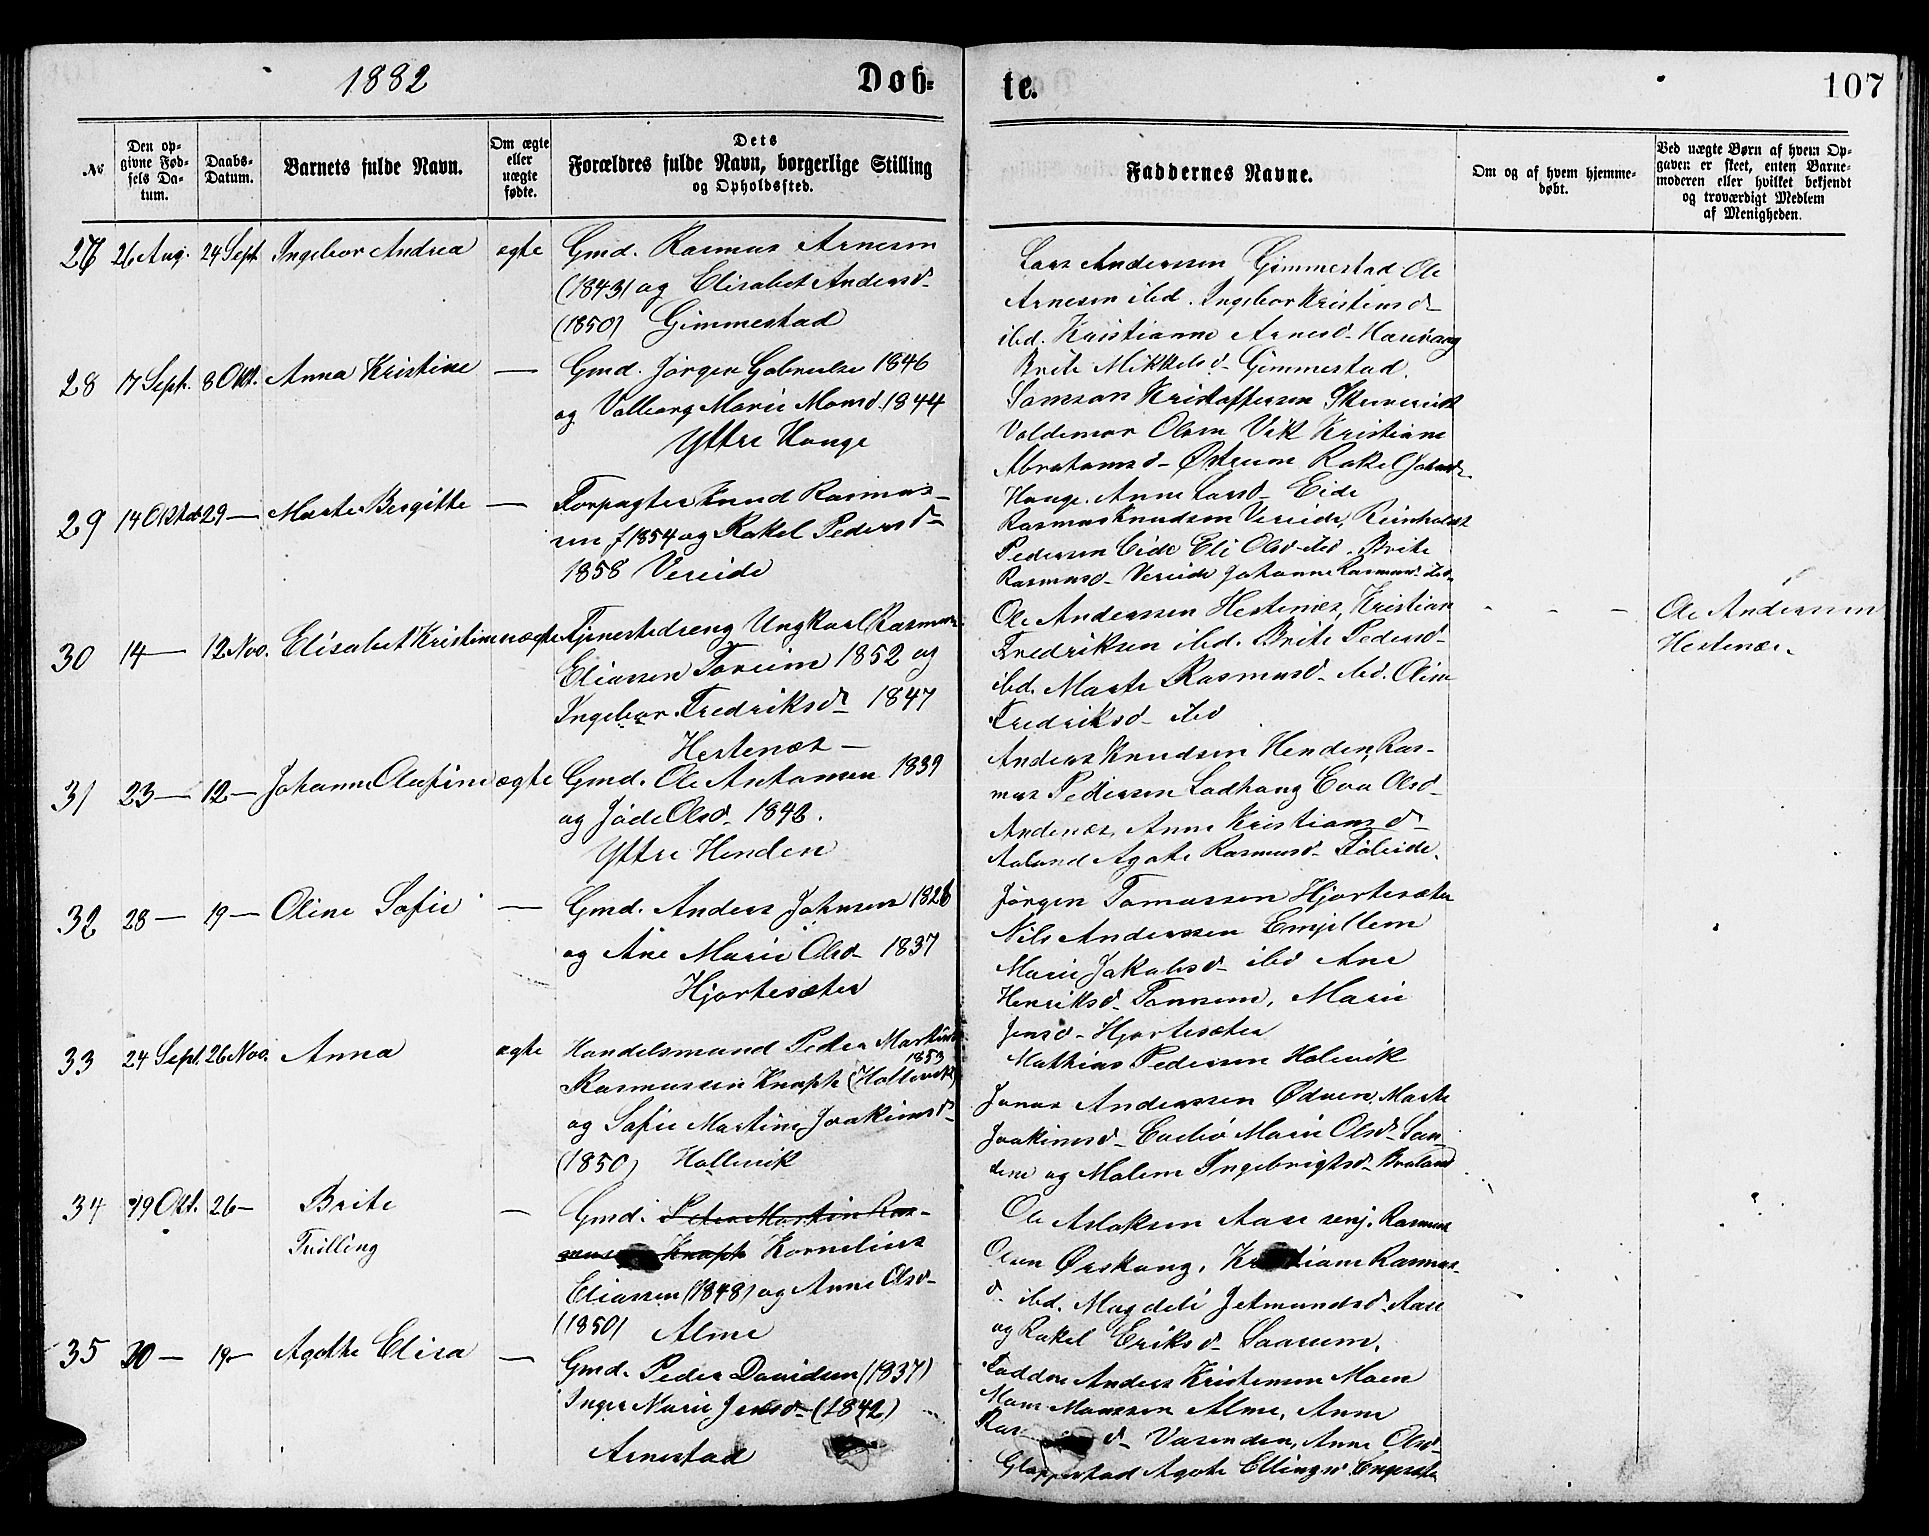 1882
Døb-
te.
107
No
Den op-
givne Fød-
sels Da-
tum.
Daabs-
Datum.
Barnets fulde Navn.
Om ægte
eller
uægte
fødte.
Dets
Forældres fulde Navn, borgerlige Stilling
og Opholdssted.
Faddernes Navne.
Om og af hvem hjemme-
døbt.
Ved uægte Børn af hvem Op-
gaven er skeet, enten Barne-
moderen eller hvilket bekjendt
og troværdigt Medlem
af Menigheden.
27 26 Aug. 24 Sept. Ingebor Andrea ægte
Gmd. Rasmus Arnesen
(1843) og Elisabet Andersd-
(1850) Gimmestad
Lars Anderssen Gimmestad Ole
Arnesen ibd. Ingebor Kristensd-
ibd. Kristianne Arnesd-
Brite Mikkelsd- Gimmestad.
28 17 Sept. 8 Okt. Anna Kristine —
Gmd. Jørgen Gabrielse 1846
og Valborg Marie Monsd. 1844
Yttre Hauge
Samson Kristoffersen
Valdemar Olsen Vik Kristiane
Abrahamsd- Rakel
Hauge. Anne Larsd- Eide
29 14 Oktob 29 — Marte Bergitte —
Forpagter Knud Rasmus-
sen f 1854 og Rakel Pedersd-
1858 Vereide
Rasmus Knudsen Vereide, Reinholdt
Pedersen Eide Eli Olsd- ibd. Brite
Rasmusd- Vereide Johanne Rasmusd- ibd
30 14 — 12 Nov. Elisabet Kristine uægte
Tjenestedreng Ungkarl Rasmus
Eliassen Toreim 1852 og
Ingebor Fredriksd- 1847
Hestenæs —
Ole Anderssen Hestenæs, Kristian
Fredriksen ibd. Brite Pedersd-
ibd. Marte Rasmusd- ibd. Oline
Fredriksd- ibd
- - -
Ole Anderssen
Hestenæs.
31 23 — 12 — Johanne Olufine ægte
Gmd. Ole Antonsen 1839
og Jøde Olsd- 1842.
Yttre Henden
Anders Knudsen Henden, Ras-
mus Pedersen Ladhaug Eva Olsd-
Andenæs, Anne Kristiansd-
Aaland Agate Rasmusd- Føleide.
32 28 — 19 — Oline Sofie —
Gmd. Anders Johnsen 1828
og Ane Marie Olsd- 1837
Hjortesæter
Jørgen Tomassen Hjortesæter
Nils Anderssen Emjellem
Marie Jakobsd- ibd Ane
Henriksd- Marie
Jensd- Hjortesæter
33 24 Sept. 26 Nov. Anna ægte
Handelsmand Peder Martin
1853
Rasmussen Knaph (Hollevik)
og Sofie Martine Joakimsd-
(1850) Hollevik
Mathias Pedersen Holevik
Jonas Anderssen Ødven, Marte
Joakimsd- Marie Olsd- San-
dene og Malene Ingebrigtsd-
34 19 Okt. 26 — Brite —
Tvilling
Gmd. Peter Martin Ras-
Knaph Kornelius
Eliassen (1848) og Anne Olsd-
(1850) Alme
Ole Aslaksen Aase senj. Rasmus
Olsen Ørskaug, Rasmus-
d- ibd. Magdeli Jetmundsd- Aase
og Rakel Eriksd- Saarem.
35 20 — 19 — Agathe Elisa —
Gmd. Peder Davidsen (1837)
Inger Marie Jensd- (1842)
Arnestad
Faddere Anders Kristensen Moen
Mons Monssen Alme, Anne
Ras- d- Vasenden, Anne Olsd-
Gloppestad Agate Ellingsd